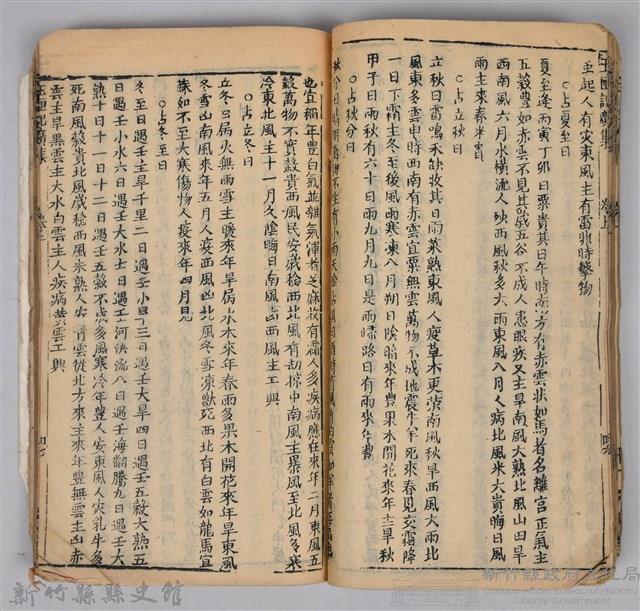 至起人有灾東風主有雷非時擊物
○占夏至日
夏至逢丙寅丁卯日粟貴其日午時南方有赤雲狀如馬者名離宮正氣主
五穀豊如赤雲不見其歲五谷不成人患眼疾又主旱南風大熟北風山田旱
西南風六月水橫流人殃西風秋多大雨東風八月人病北風米大貴晦日風
雨主來春米貴
○占立秋日
立秋日雷鳴禾缺收其日雨菜熟東風人疫草木更荣南風秋旱西風大雨北
風東冬雲申時西南有赤雲宜粟無雲萬物不成地震牛羊死來春見交霜降
一日下霜主冬至後風雨寒凍八月朔日陰暗來年豊果木開花來年主旱秋
甲子日雨秋有六十日雨九月九日是雨歸路日有雨來年豊
○占秋分日
秋分日晴明
也宜稻年豊白氣並雜氣渾者芝麻牧有霜人多疾病應在來年二月東風五
穀萬物不實穀貴西風民安歲稔西北風有刼掠中南風主暴風至北風多
冷東北風主十一月久陰晦日南風凶西風主工興
○占立冬日
立冬日屬火無雨雪主暖來年旱屬水木來年春雨多果木開花來年旱東風
冬雪凶南風來年五月人疫西風凶北風冬雪凍獸死西北有白雲如龍馬宜
蔴如不至大寒傷物人疫來年四月見
○占冬至日
冬至日遇壬主旱千里二日遇壬小旱三日遇壬大旱四日遇壬五穀大熟五
日遇壬小水六日遇壬大水七日遇壬河决流八日遇壬海翻騰九日遇壬大
熟十日十一日十二日遇壬五穀不成多風寒冷年豊人安東風人灾乳牛多
死南風穀貴北風歲稔西風禾熟人安青雲從北方來主來年豊無雲主凶赤
雲主旱黑雲主大水白雲主人疾病黄雲工興
新竹縣縣史館
新竹縣政府文化局
Cultural Affairs Bureau of Hsinchu
County Government